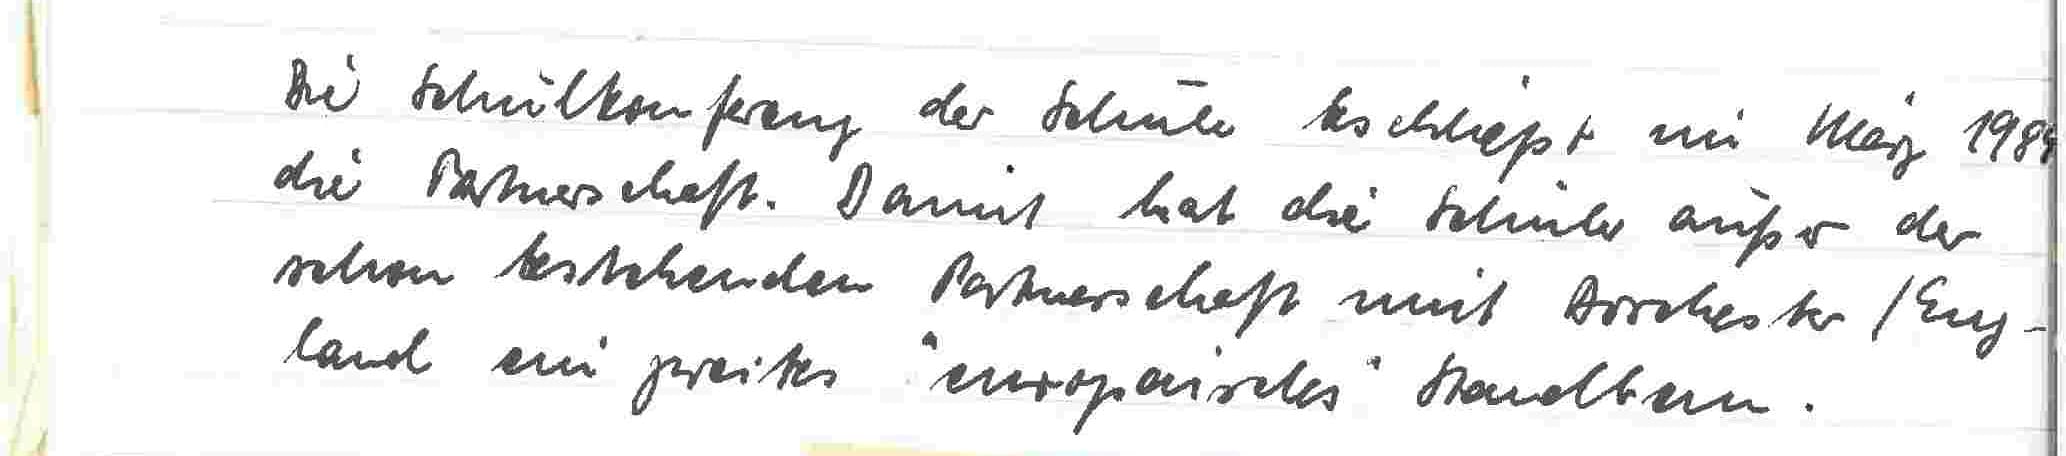 Die Schulkonferenz der Schule beschließt im März 1984
die Partnerschaft. Damit hat die Schule außer der
schon bestehenden Partnerschaft mit Dorchester / Eng-
land ein zweites "europäisches" Standbein.